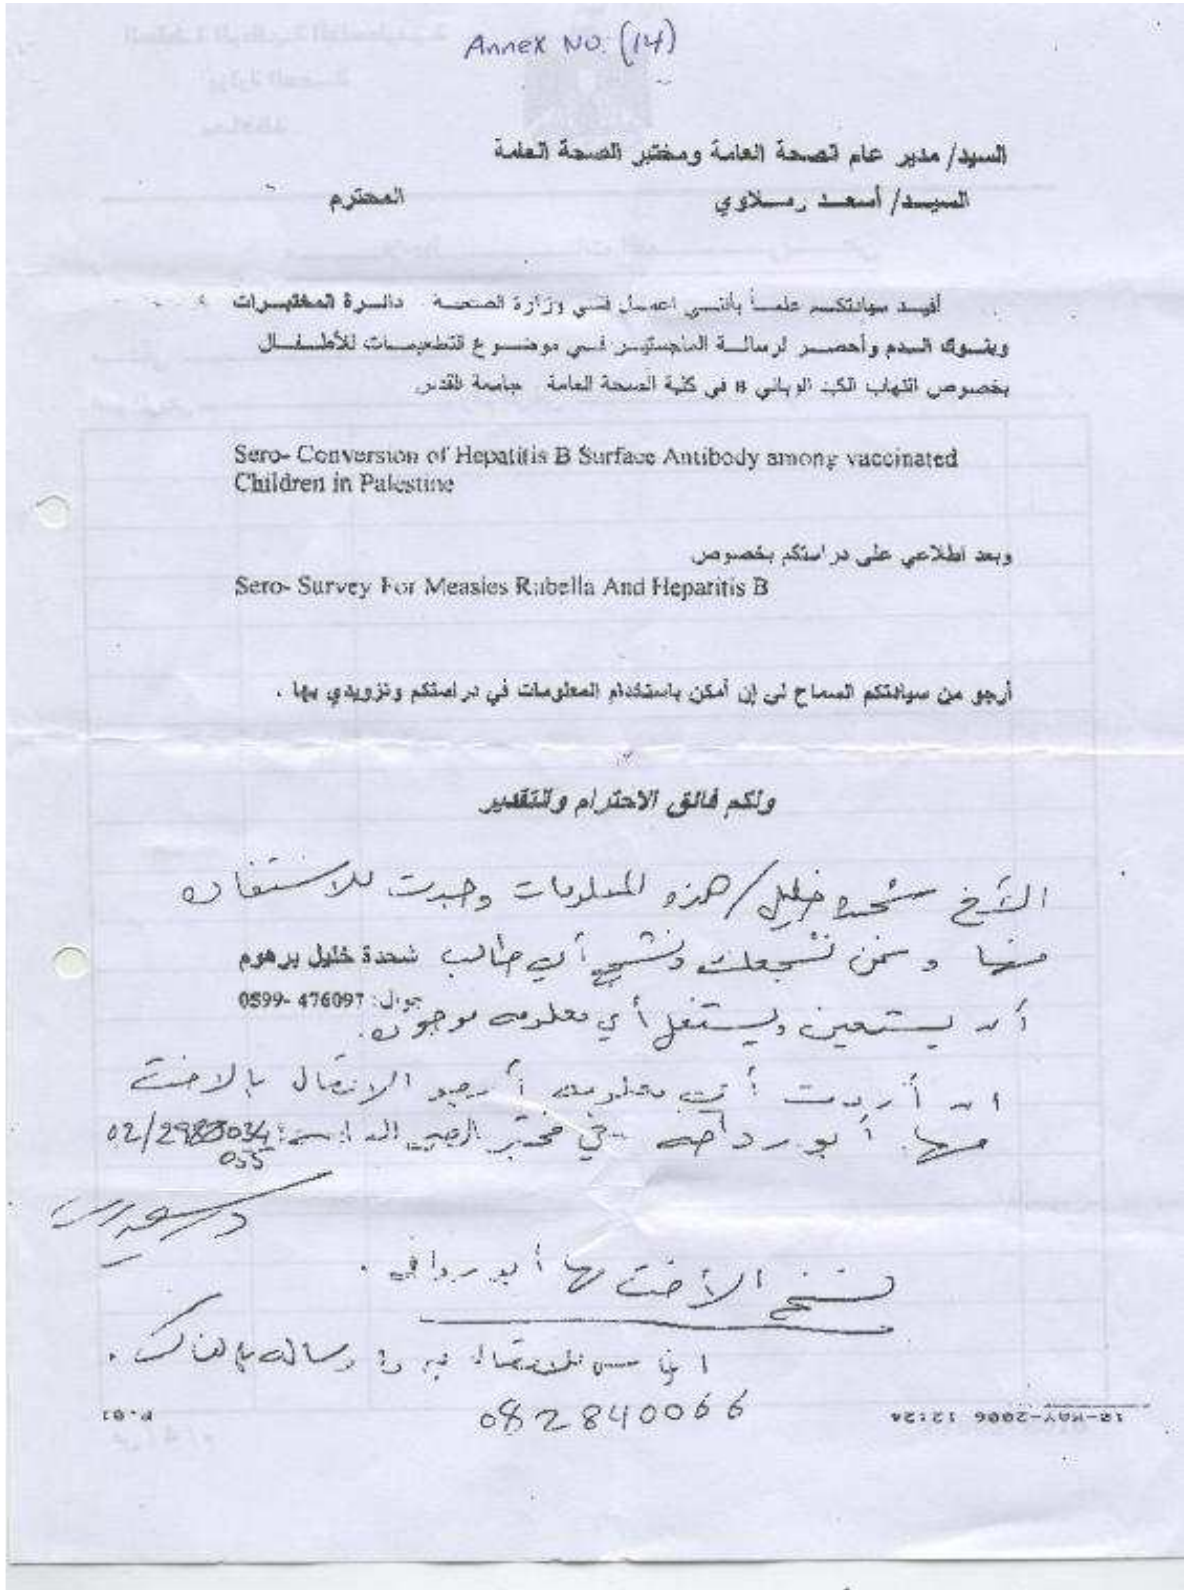 Annex No. (14)
السيد/ مدير عام الصحة العامة ومختبر الصحة العامة
السيد/ أسعد رملاوي المحترم
أفيد سيادتكم علماً بأنني اعمل في وزارة الصحة دائرة المختبرات
وبنوك الدم وأحضر لرسالة الماجستير في موضوع التطعيمات للأطفال
بخصوص التهاب الكبد الوبائي B في كلية الصحة العامة جامعة القدس.
Sero- Conversion of Hepatitis B Surface Antibody among vaccinated
Children in Palestine
وبعد اطلاعي على دراستكم بخصوص
Sero- Survey For Measles Rubella And Heparitis B
أرجو من سيادتكم السماح لي إن أمكن باستخدام المعلومات في دراستكم وتزويدي بها .
ولكم فائق الاحترام والتقدير
الأخ شحده خليل/ هذه المعلومات وجدت للاستفاده
منها ونحن نشجعك ونشجع أي طالب
شحدة خليل برهوم
جوال: 476097 -0599
أن يستعين ويستغل أي معلومه موجوده.
ان أردت أي معلومه أرجو الاتصال بالاخت
مها أبو رداحه في مختبر 02/2988034
055
نسخ الأخت مها أبو
082840066
P.01
12-MAY-2006 12:24